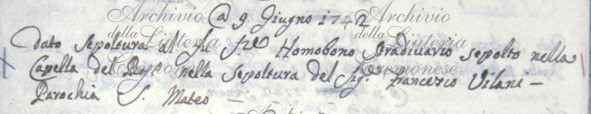 @ 9 Giugno 1742
dato Sepoltura al Sig.r Homobono Stradiuario sepolto nella
Capella del Ros.o nella Sepoltura del Sig.r Francesco Vilani —
Parochia S. Mateo —
Archivio della Liuteria Cremonese
Archivio della Liuteria Cremonese